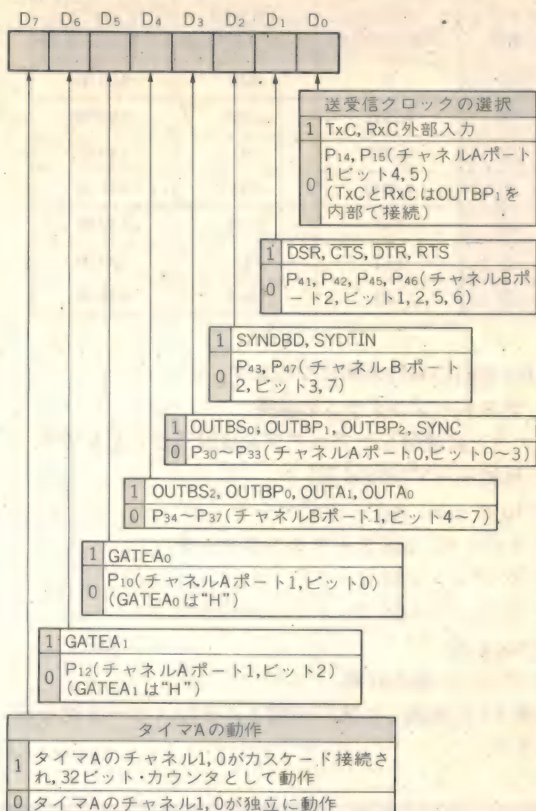 D7 D6 D5 D4 D3 D2 D1 D0
送受信クロックの選択
1 TxC, RxC外部入力
0 P14, P15(チャネルAポート
1ビット4, 5)
(TxCとRxCはOUTBP1を
内部で接続)
1 D̅S̅R̅, C̅T̅S̅, D̅T̅R̅, R̅T̅S̅
0 P41, P42, P45, P46(チャネルBポ
ート2,ビット1, 2, 5, 6)
1 SYNDBD, SYDTIN
0 P43, P47(チャネルBポート
2,ビット3, 7)
1 OUTBS0, OUTBP1, OUTBP2, SYNC
0 P30~P33(チャネルAポート0,ビット0~3)
1 OUTBS2, OUTBP0, OUTA1, OUTA0
0 P34~P37(チャネルBポート1,ビット4~7)
1 GATEA0
0 P10(チャネルAポート1,ビット0)
(GATEA0は“H”)
1 GATEA1
0 P12(チャネルAポート1,ビット2)
(GATEA1は“H”)
タイマAの動作
1 タイマAのチャネル1, 0がカスケード接続さ
れ, 32ビット・カウンタとして動作
0 タイマAのチャネル1, 0が独立に動作